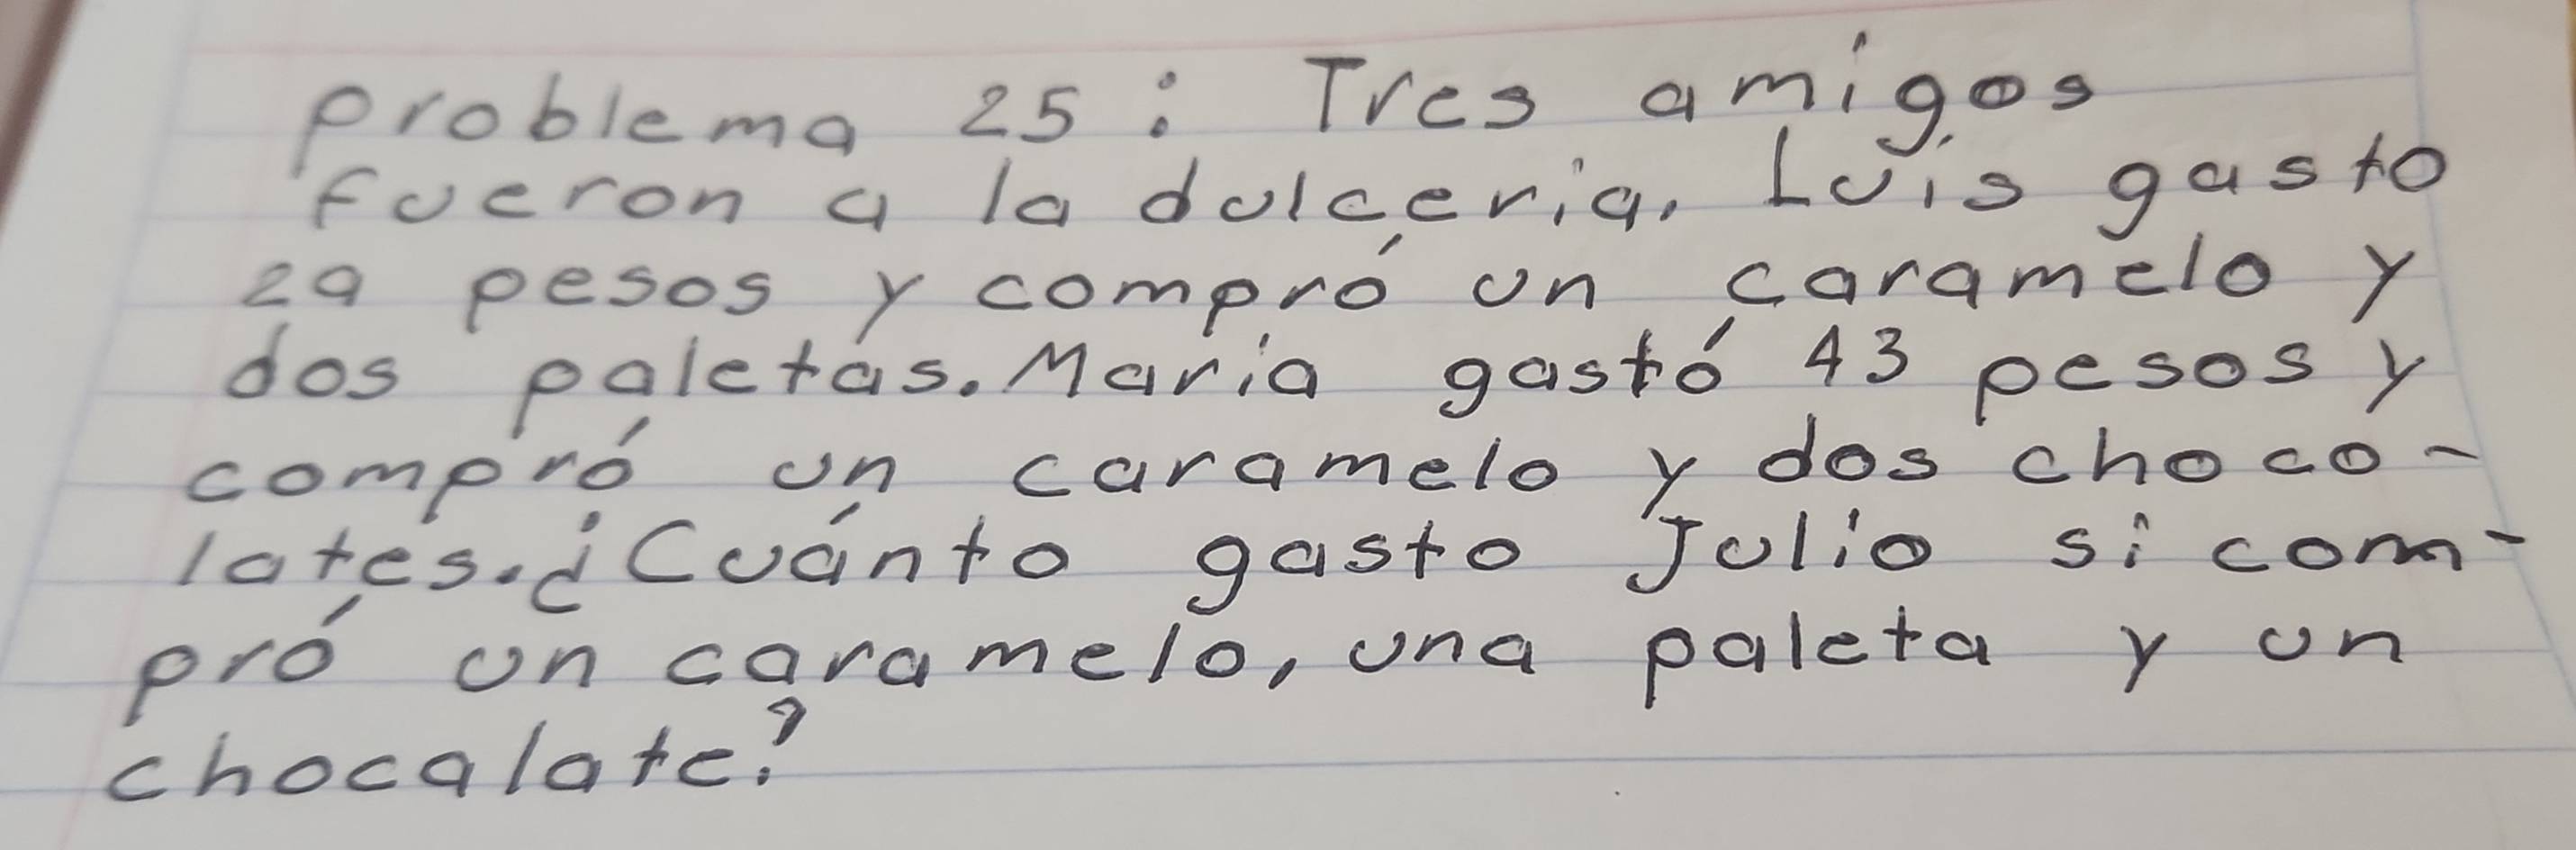 problema 25: Tres amigos
fueron a la dulcería. Luis gasto
29 pesos y compró un caramelo y
dos paletas. María gastó 43 pesos y
compró un caramelo y dos choco-
lates. ¿Cuánto gasto Julio si com-
pró un caramelo, una paleta y un
chocalate?